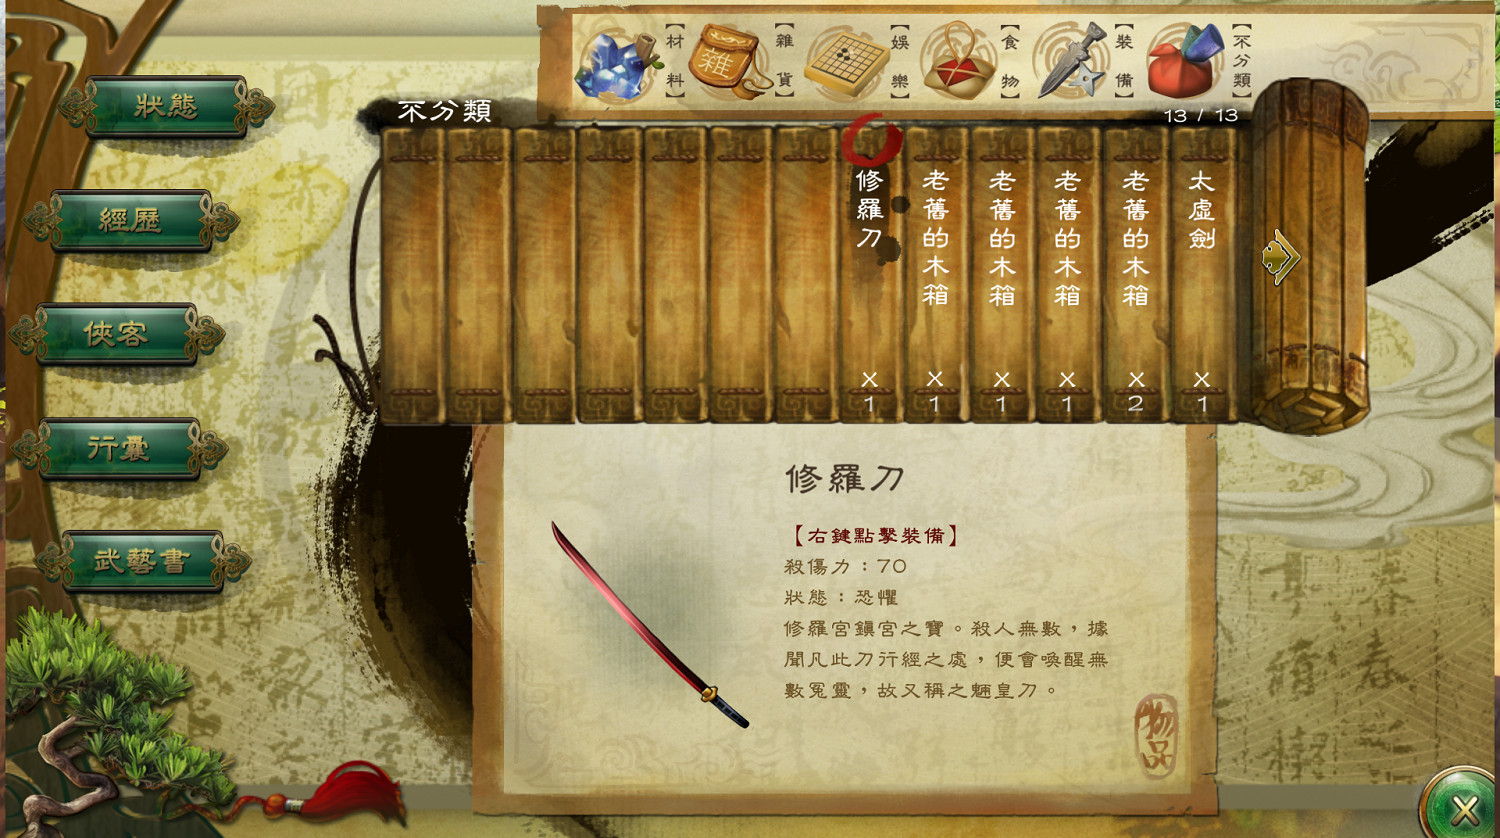 【材料】
雜
【雜貨】
【娛樂】
【食物】
【裝備】
【不分類】
不分類
13 / 13
狀態
經歷
俠客
行囊
武藝書
太虛劍
×
1
老舊的木箱
×
2
老舊的木箱
×
1
老舊的木箱
×
1
老舊的木箱
×
1
修羅刀
×
1
修羅刀
【右鍵點擊裝備】
殺傷力：70
狀態：恐懼
修羅宮鎮宮之寶。殺人無數，據
聞凡此刀行經之處，便會喚醒無
數冤靈，故又稱之魎皇刀。
物品